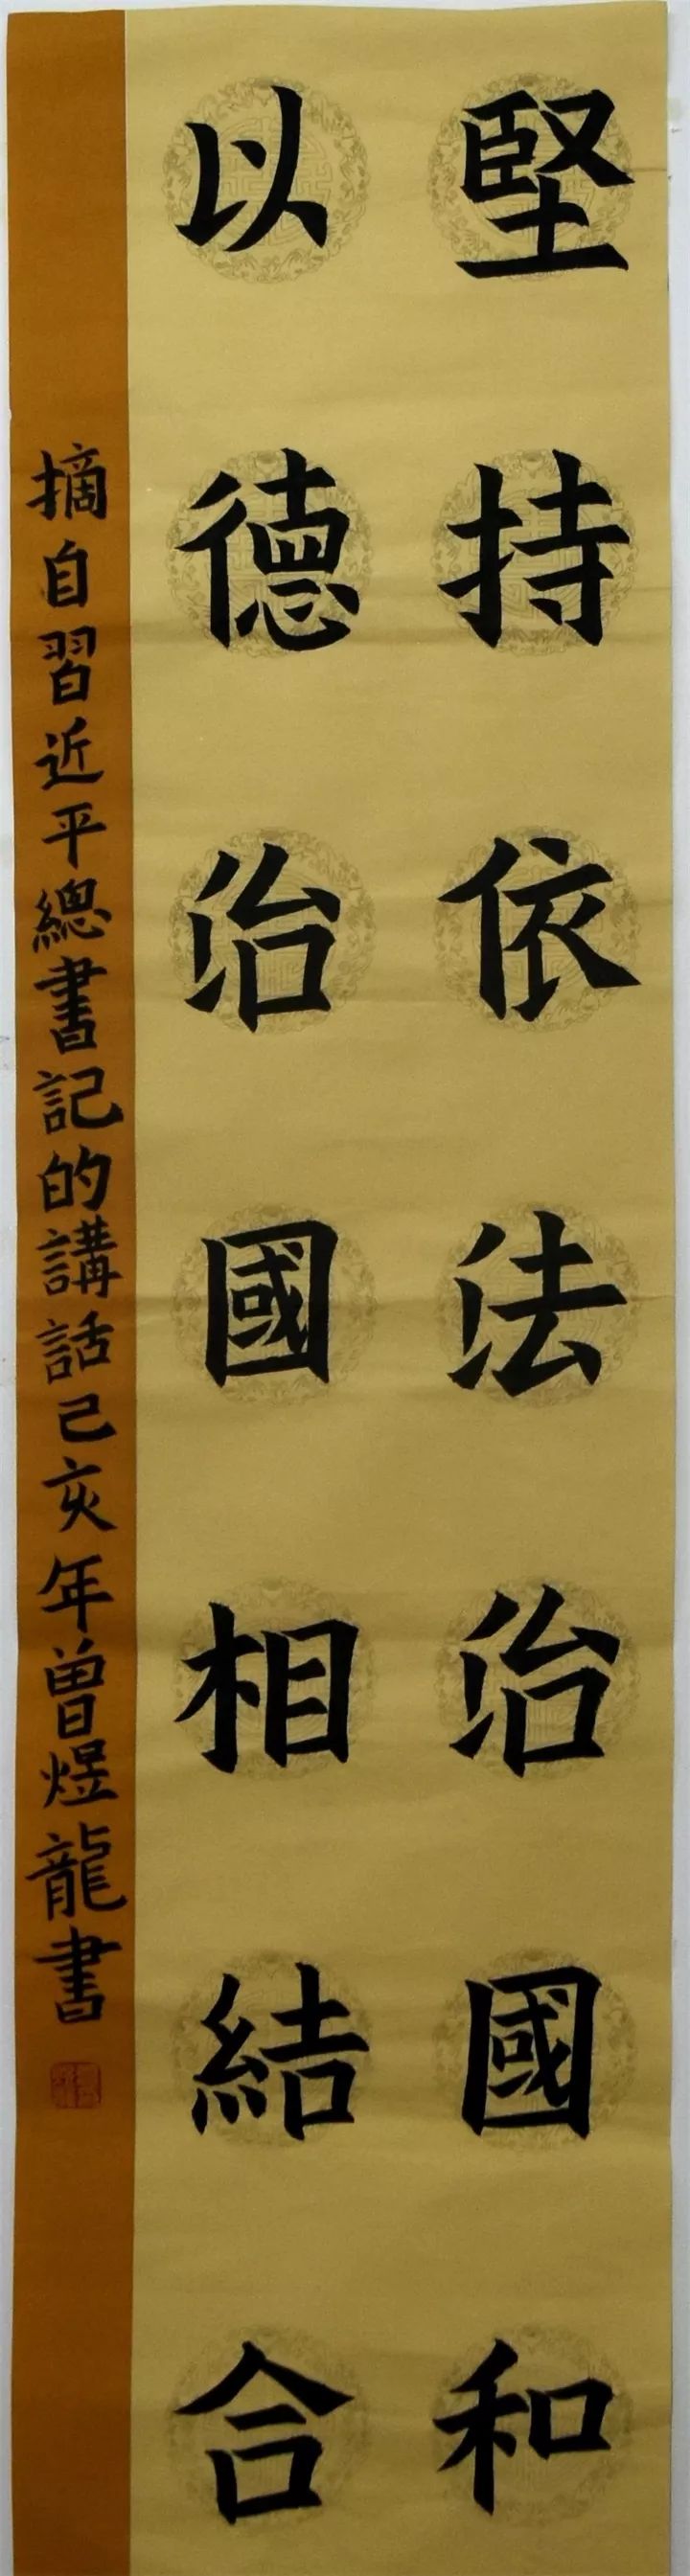 堅持依法治國和
以德治國相結合
摘自習近平總書記的講話己亥年曾煜龍書